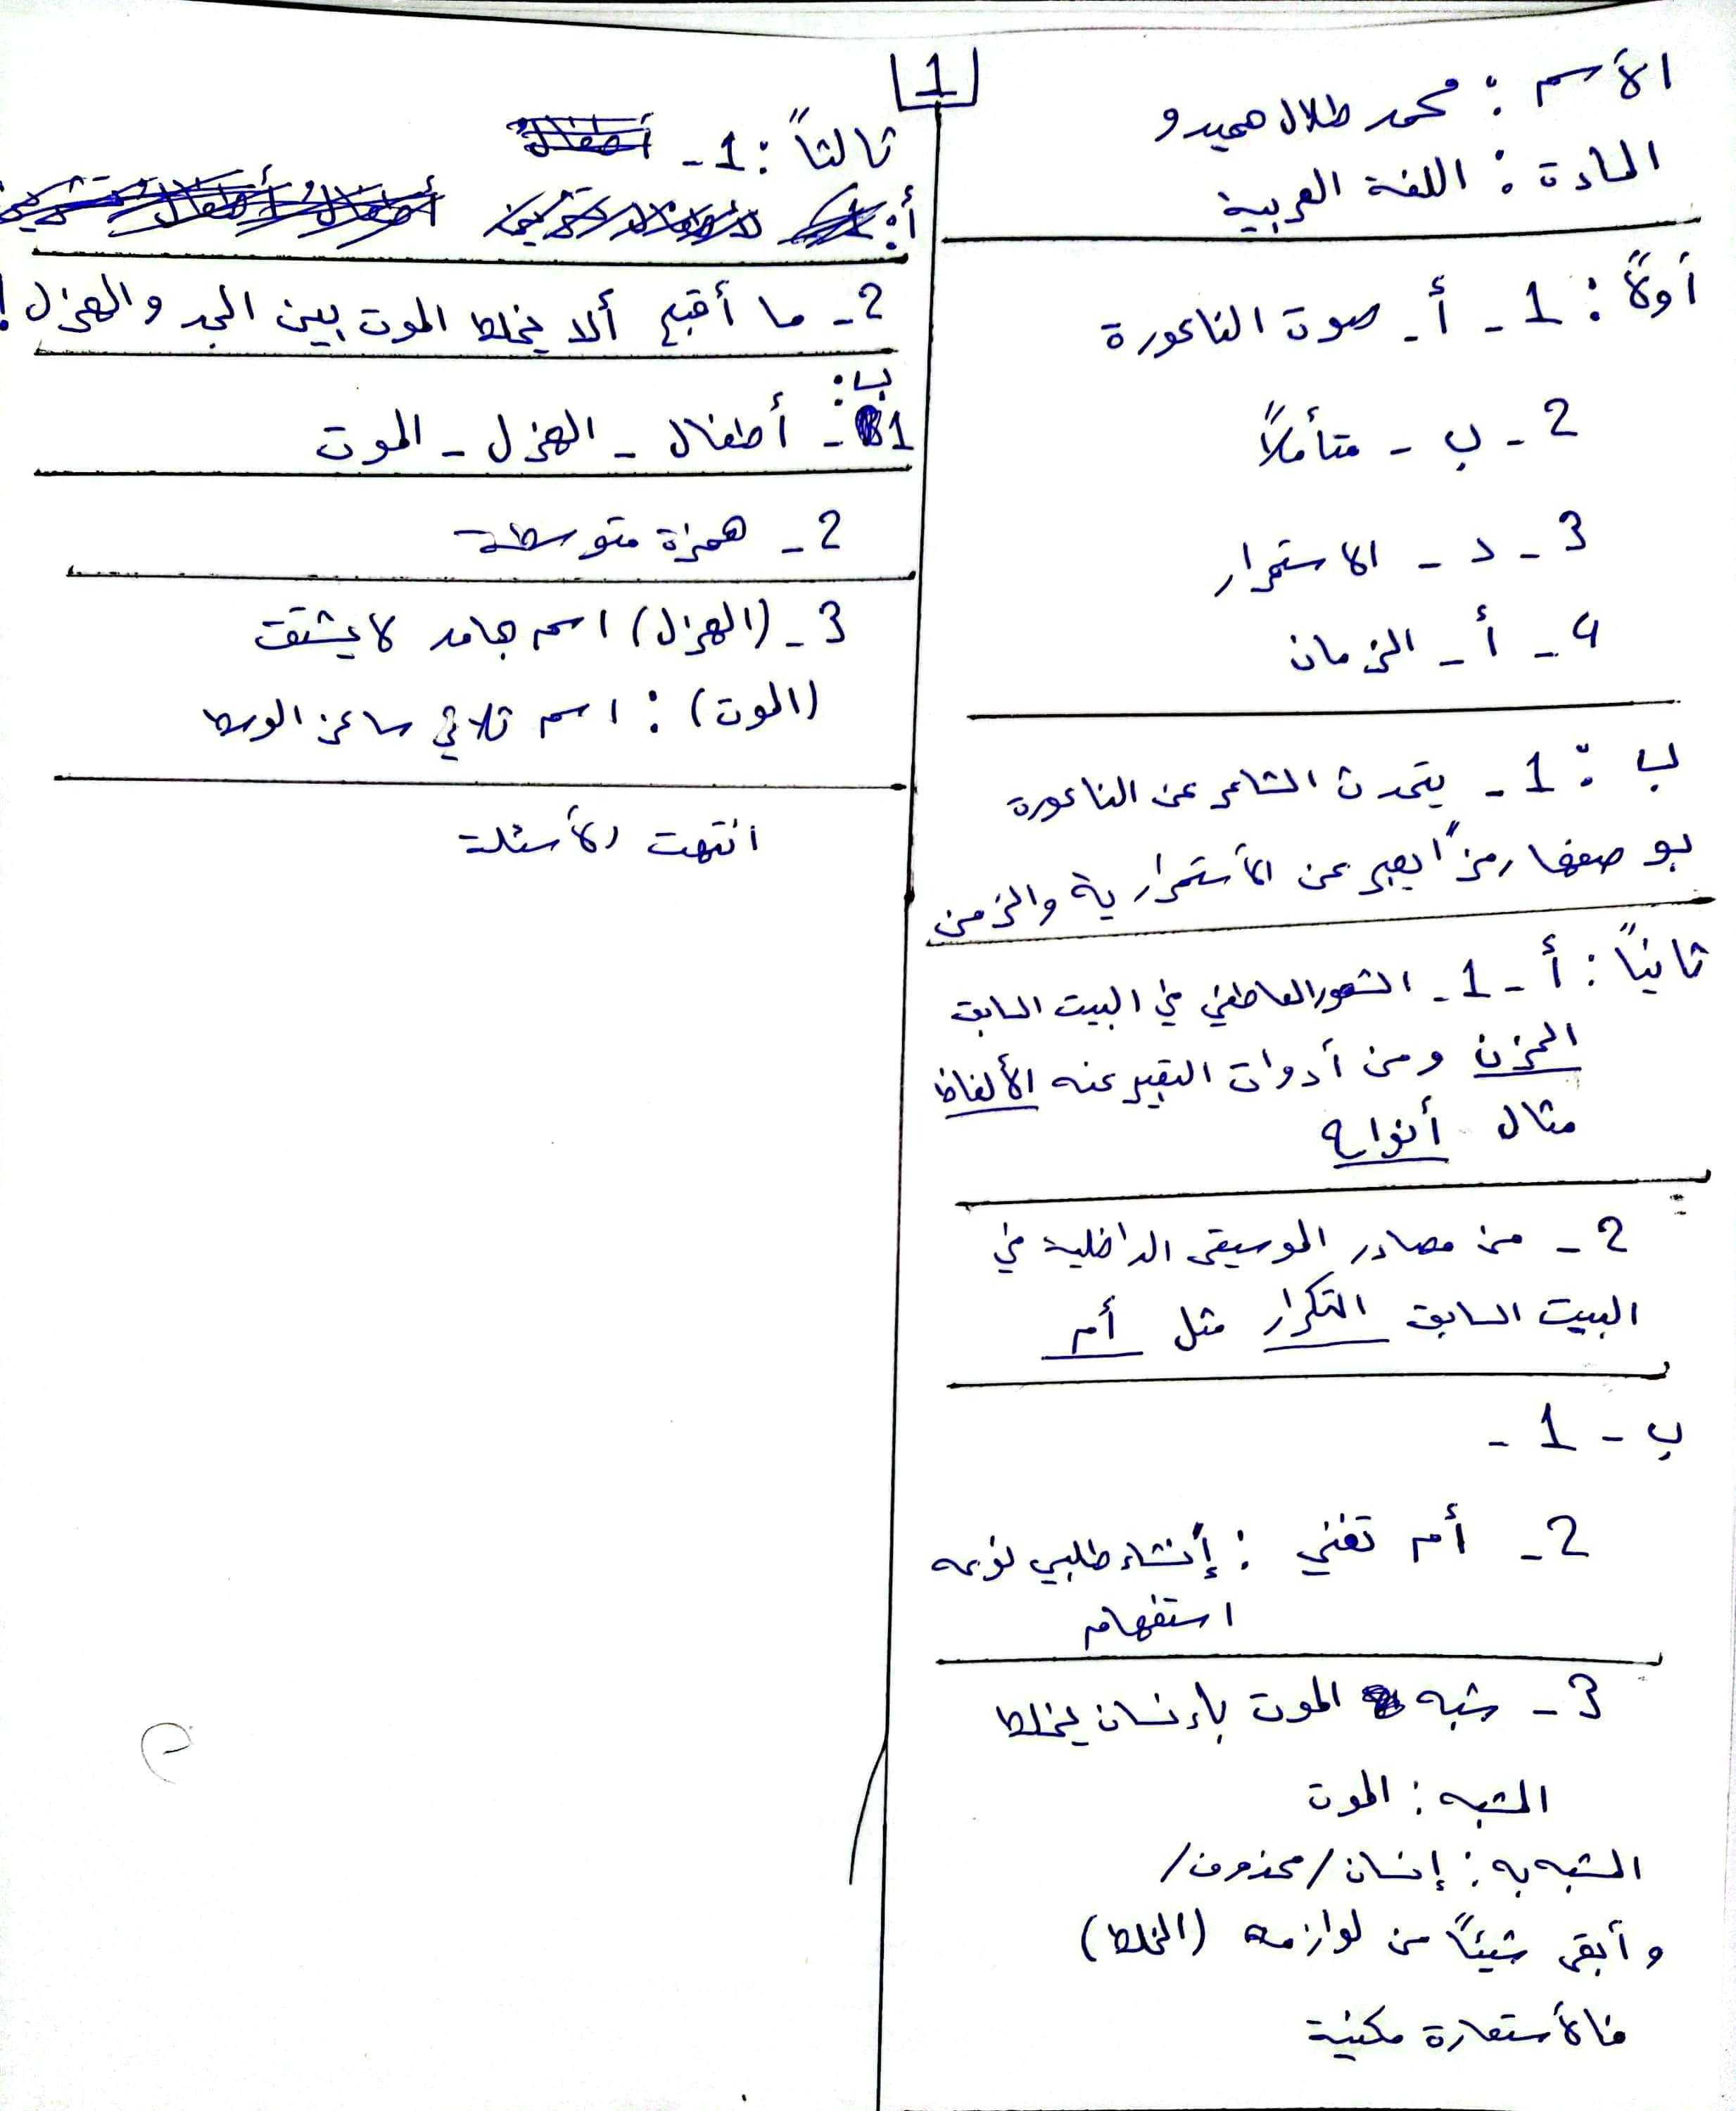 1
الأسم : محمد طلال حميدو
المادة : اللغة العربية
أولاً : 1 - أ - صوت الناعورة
2 - ب - متأملاً
3 - د - الاستمرار
4 - أ - الزمان
ب : 1 - يتحدث الشاعر عن الناعورة
بوصفها رمزاً يعبر عن الأستمرارية والزمن
ثانياً : أ - 1 - الشعور العاطفي في البيت السابق
الحزن ومن أدوات التعبير عنه الألفاظ
مثال أنواح
2 - من مصادر الموسيقى الداخلية في
البيت السابق التكرار مثل أم
ب - 1 -
2 - أم تغني : إنشاء طلبي نوعه
استفهام
3 - شبه الموت بإنسان يخلط
المشبه : الموت
المشبه به : إنسان /محذوف/
وأبقى شيئاً من لوازمه (الخلط)
فالأستعارة مكنية
ثالثاً : 1 -
أ :
2 - ما أقبح ألا يخلط الموت بين الجد والهزل !
ب :
1 - أطفال - الهزل - الموت
2 - همزة متوسطة
3 - (الهزل) اسم جامد لا يشتق
(الموت) : اسم ثلاثي ساكن الوسط
انتهت الأسئلة